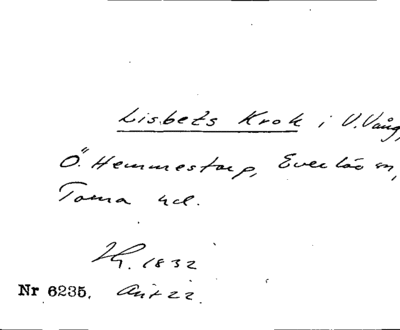 Lisbets Krok i V. Vång,
Ö. Hemmestorp, Everlöv sn,
Torna hd.
1832
Nr 6235. Akt 22.